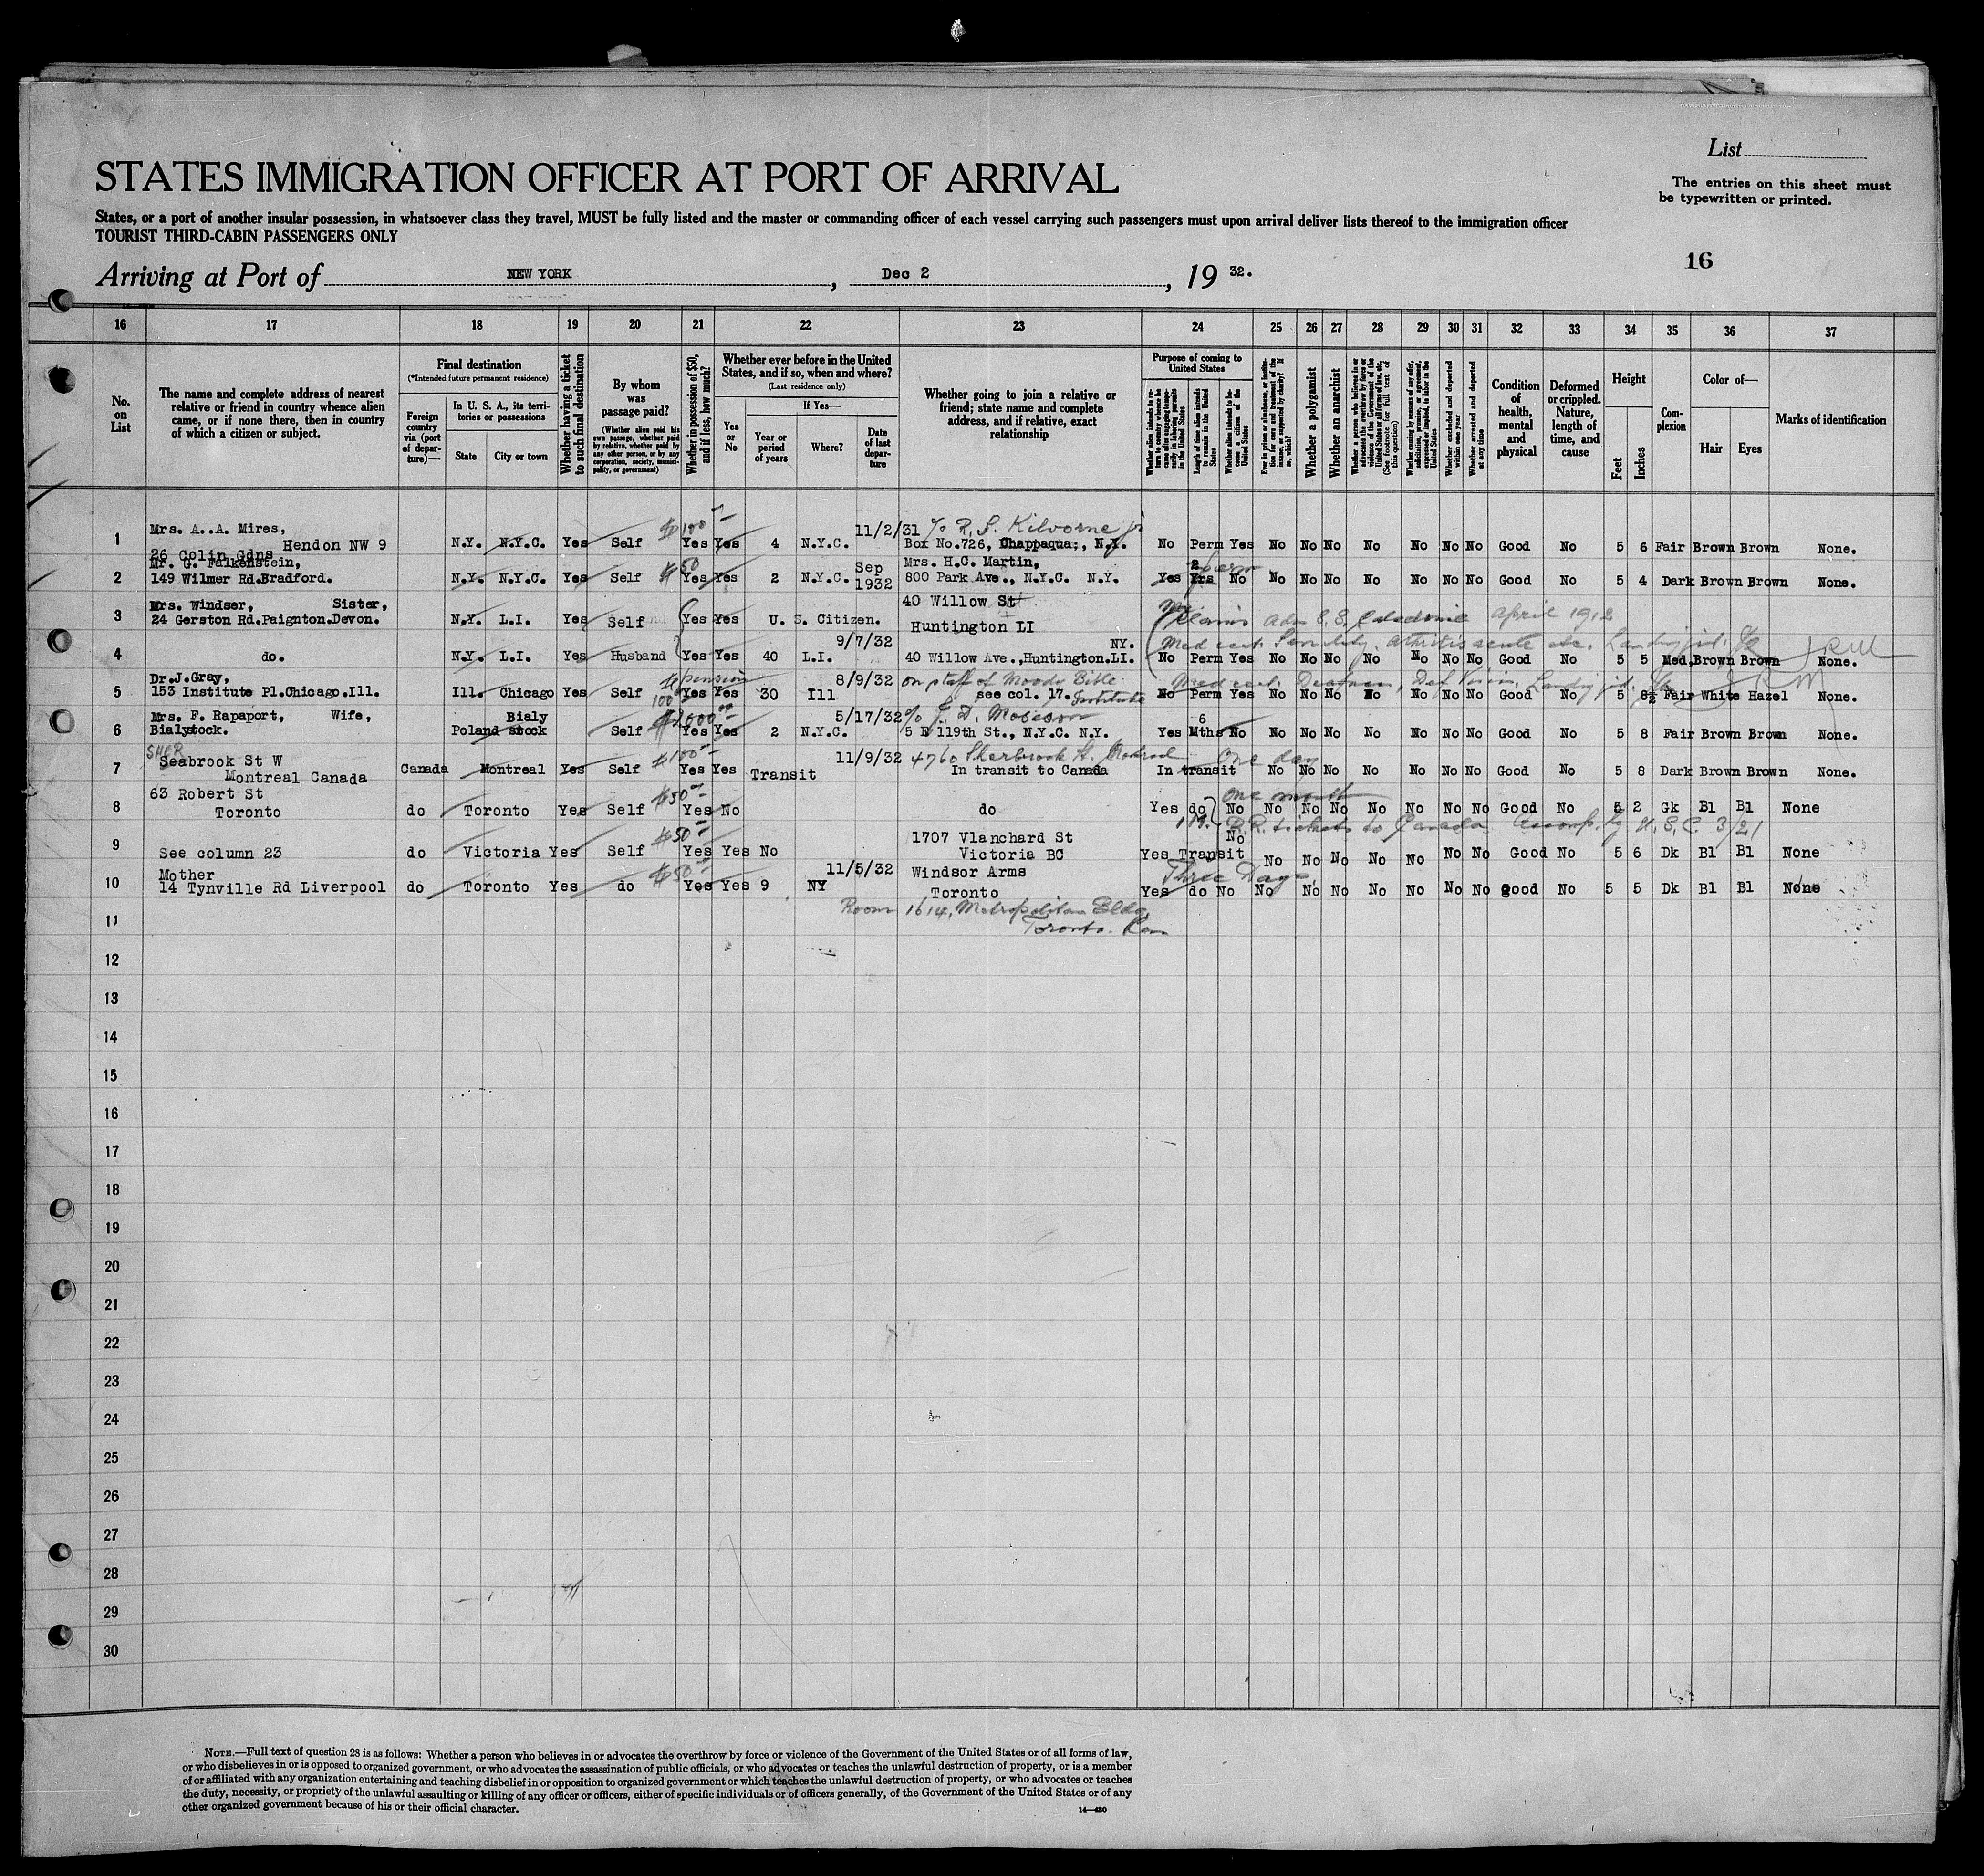 List
STATES IMMIGRATION OFFICER AT PORT OF ARRIVAL
The entries on this sheet must
be typewritten or printed.
States, or a port of another insular possession, in whatsoever class they travel, MUST be fully listed and the master or commanding officer of each vessel carrying such passengers must upon arrival deliver lists thereof to the immigration officer
TOURIST THIRD-CABIN PASSENGERS ONLY
16
Arriving at Port of NEW YORK, Dec 2, 1932.
16 17 18 19 20 21 22 23 24 25 26 27 28 29 30 31 32 33 34 35 36 37
No. on List
The name and complete address of nearest relative or friend in country whence alien came, or if none there, then in country of which a citizen or subject.
Final destination
(*Intended future permanent residence)
Foreign country via (port of departure)—
In U. S. A., its territories or possessions
State
City or town
Whether having a ticket to such final destination
By whom was passage paid?
(Whether alien paid his own passage, whether paid by relative, whether paid by any other person, or by any corporation, society, municipality, or government)
Whether in possession of $50, and if less, how much?
Whether ever before in the United States, and if so, when and where?
(Last residence only)
Yes or No
If Yes—
Year or period of years
Where?
Date of last departure
Whether going to join a relative or friend; state name and complete address, and if relative, exact relationship
Purpose of coming to United States
Length of time alien intends to remain in the United States
Whether alien intends to become a citizen of the United States
Whether a polygamist
Whether an anarchist
Whether excluded and deported within one year
Whether arrested and deported at any time
Condition of health, mental and physical
Deformed or crippled. Nature, length of time, and cause
Height
Feet
Inches
Complexion
Color of—
Hair
Eyes
Marks of identification
1 Mrs. A..A. Mires, 26 Colin Gdns Hendon NW 9 N.Y. N.Y.C. Yes Self $100 Yes Yes 4 N.Y.C. 11/2/31 c/o R. S. Kilvorne jr Box No.726, Chappaqua;, N.Y. No Perm Yes No No No No No No No Good No 5 6 Fair Brown Brown None.
2 Mr. G. Falkenstein, 149 Wilmer Rd.Bradford. N.Y. N.Y.C. Yes Self $50 Yes Yes 2 N.Y.C. Sep 1932 Mrs. H.C. Martin, 800 Park Ave., N.Y.C. N.Y. Yes 2 Yrs Perm No No No No No No No No Good No 5 4 Dark Brown Brown None.
3 Mrs. Windser, Sister, 24 Gerston Rd.Paignton.Devon. N.Y. L.I. Yes Self Yes Yes U. S. Citizen. 40 Willow St Huntington LI Claims adm S.S. Caledonia April 1912
4 do. N.Y. L.I. Yes Husband Yes Yes 40 L.I. 9/7/32 40 Willow Ave.,Huntington.LI. NY. Med cert. Senility. Arthritis acute etc. No Perm Yes No No No No No No No Good No 5 5 Med. Brown Brown None. JRM
5 Dr.J.Gray, 153 Institute Pl.Chicago.Ill. Ill. Chicago Yes Self pension $100 Yes Yes 30 Ill 8/9/32 On staff of Moody Bible Institute see col. 17. Med cert. Deafness, Def Vision. No Perm Yes No No No No No No No Good No 5 8½ Fair White Hazel None. JRM
6 Mrs. F. Rapaport, Wife, Bialystock. Poland Bialy stock Self $2000 Yes Yes 2 N.Y.C. 5/17/32 c/o 5 E 119th St., N.Y.C. N.Y. Yes 6 Mths No No No No No No No No Good No 5 8 Fair Brown Brown None.
7 SHER Seabrook St W Montreal Canada Canada Montreal Yes Self $100 Yes Yes Transit 11/9/32 4760 Sherbrook St. Montreal In transit to Canada One day In transit No No No No No No No Good No 5 8 Dark Brown Brown None.
8 63 Robert St Toronto do Toronto Yes Self $50 Yes No do One month Yes do No No No No No No No No Good No 5 2 Gk Bl Bl None
R.R. tickets to Canada
9 See column 23 do Victoria Yes Self $50 Yes Yes No 1707 Vlanchard St Victoria BC Yes Transit No No No No No No No No Good No 5 6 Dk Bl Bl None
10 Mother 14 Tynville Rd Liverpool do Toronto Yes do $50 Yes Yes 9 NY 11/5/32 Windsor Arms Toronto Three Days Yes do No No No No No No No No good No 5 5 Dk Bl Bl None
11 Room 1614, Metropolitan Bldg, Toronto. Can
12
13
14
15
16
17
18
19
20
21
22
23
24
25
26
27
28
29
30
NOTE.—Full text of question 28 is as follows: Whether a person who believes in or advocates the overthrow by force or violence of the Government of the United States or of all forms of law,
or who disbelieves in or is opposed to organized government, or who advocates the assassination of public officials, or who advocates or teaches the unlawful destruction of property, or is a member
of or affiliated with any organization entertaining and teaching disbelief in or opposition to organized government or which teaches the unlawful destruction of property, or who advocates or teaches
the duty, necessity, or propriety of the unlawful assaulting or killing of any officer or officers, either of specific individuals or of officers generally, of the Government of the United States or of any
other organized government because of his or their official character.
14—430